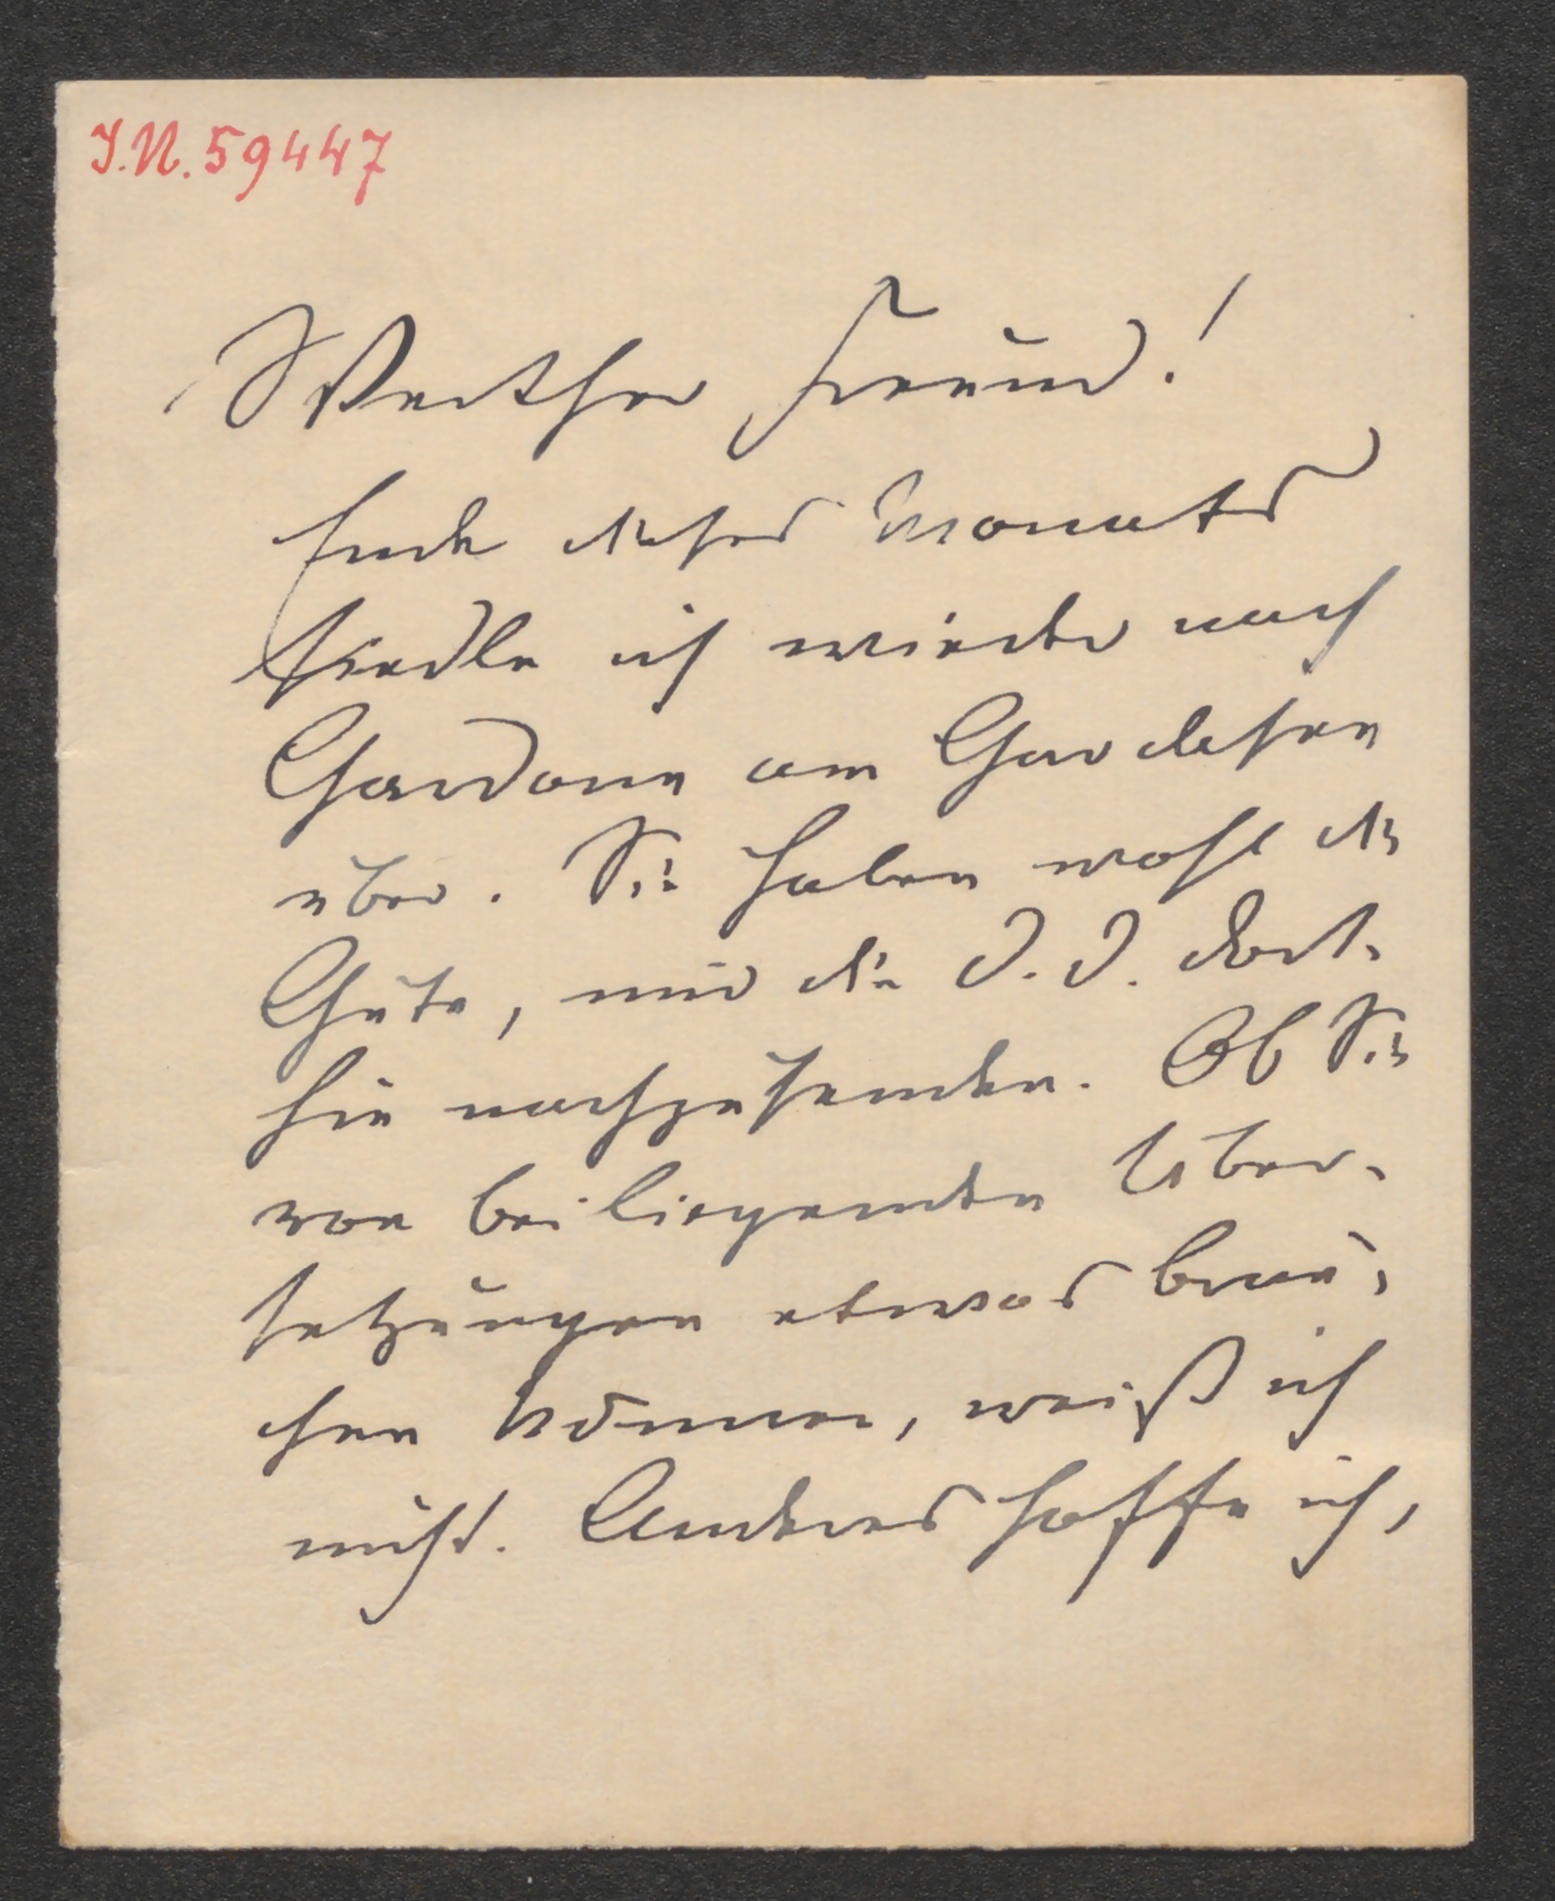 I.N. 59447
Werther Freund!
Ende dieses Monats
siedle ich wieder nach
Gardone am Gardasee
über. Sie haben wohl die
Güte, mir die D. D. dort-
hin nachzusenden. Ob Sie
von beiliegenden Über-
setzungen etwas brau-
chen können, weiß ich
nicht. Anderes hoffe ich,